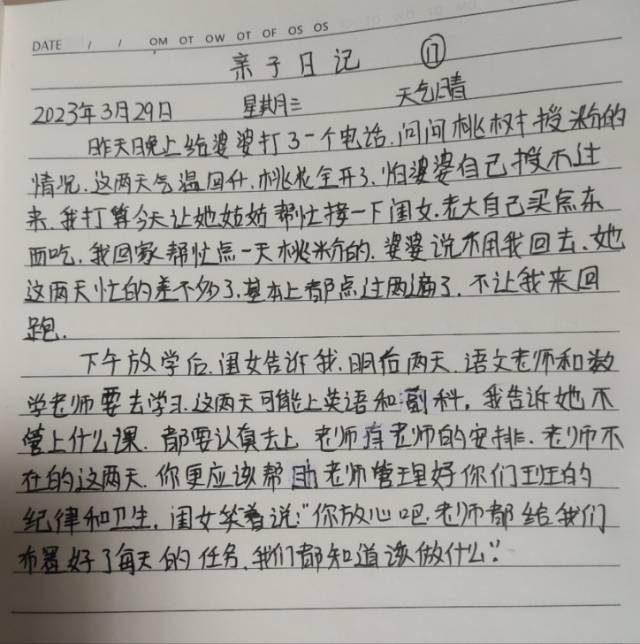 DATE / / OM OT OW OT OF OS OS
亲子日记 ⑰
2023年3月29日 星期三 天气晴
昨天晚上给婆婆打了一个电话.问问桃树授粉的
情况.这两天气温回升.桃花全开了.怕婆婆自己授不过
来.我打算今天让她姑姑帮忙接一下闺女.老大自己买点东
西吃.我回家帮忙点一天桃粉的.婆婆说不用我回去.她
这两天忙的差不多了.基本上都点过两遍了.不让我来回
跑.
下午放学后.闺女告诉我.明后两天.语文老师和数
学老师要去学习.这两天可能上英语和副科.我告诉她不
管上什么课.都要认真去上 老师有老师的安排.老师不
在的这两天.你更应该帮助老师管理好你们班的
纪律和卫生.闺女笑着说:"你放心吧.老师都给我们
布置好了每天的任务.我们都知道该做什么."